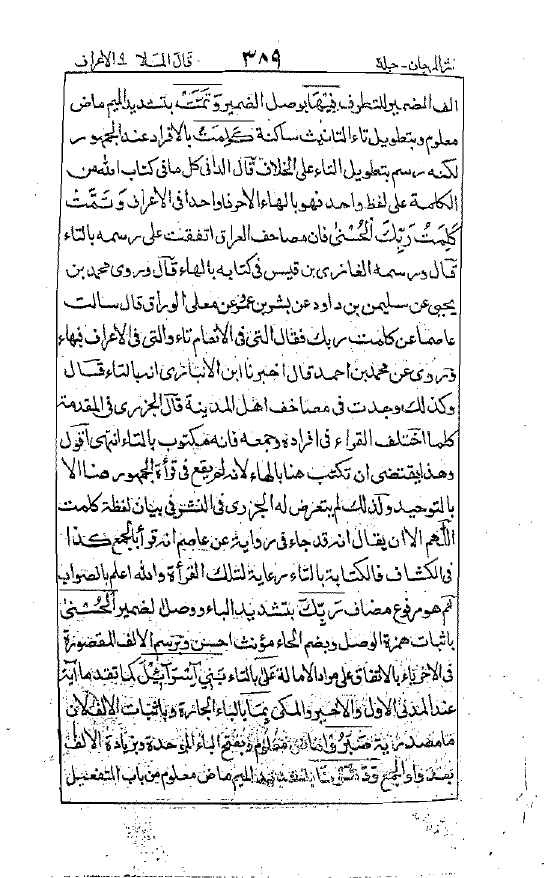 نثر المرجان - جلد ٣٨٩ قال الملا ٩ الأعراف
الف الضمير للتطرف فِيْهَا بوصل الضمير وَتَمَّتْ بتشديد الميم ماض
معلوم وبتطويل تاء التانيث ساكنة كَلِمَتُ بالافراد عند الجمهور
لكنه رسم بتطويل التاء على الخلاف قال الدانى كل ما فى كتاب الله من
الكلمة على لفظ واحد فهو بالهاء الا حرفا واحدا فى الاعراف وَتَمَّتْ
كَلِمَتُ رَبِّكَ الْحُسْنىٰ فان مصاحف العراق اتفقت على رسمه بالتاء
قال ورسمه الغازى بن قيس فى كتابه بالهاء قال وروى محمد بن
يحيى عن سليمن بن داود عن بشر بن عمر عن معلى الوراق قال سالت
عاصما عن كلمت ربك فقال التى فى الانعام تاء والتى فى الاعراف فهاء
وروى عن محمد بن احمد قال اخبرنا ابن الانبارى انه بالتاء قال
وكذلك وجدت فى مصاحف اهل المدينة قال الجزرى فى المقدمة
كلما اختلف القراء فى افراده وجمعه فانه مكتوب بالتاء انتهى اقول
وهذا يقتضى ان تكتب هنا بالهاء لانه لم يقع فى قرأة الجمهور هنا الا
بالتوحيد ولذلك لم يتعرض له الجزرى فى النشر فى بيان لفظة كلمت
اللهم الا ان يقال انه قد جاء فى رواية عن عاصم انه قرأ بالجمع كذا
فى الكشاف فالكتابة بالتاء رعاية لتلك القرأة والله اعلم بالصواب
ثم هو مرفوع مضاف رَبِّكَ بتشديد الباء ووصل الضمير الْحُسْنىٰ
باثبات همزة الوصل وبضم الحاء مؤنث احسن وبرسم الالف المقصورة
فى الاخر ياء بالاتفاق على مراد الامالة عَلىٰ بالياء بَنِيْ اِسْرَآئِيْلَ كما تقدما اٰية
عند المدنى الاول والاخير والمكى بِمَا بالباء الجارة وباثبات الالف لان
ما مصدرية صَبَرُوْا ماض معلوم وبفتح الباء الموحدة وبزيادة الالف
بعد واو الجمع وَدَمَّرْنَا بتشديد الميم ماض معلوم من باب التفعيل